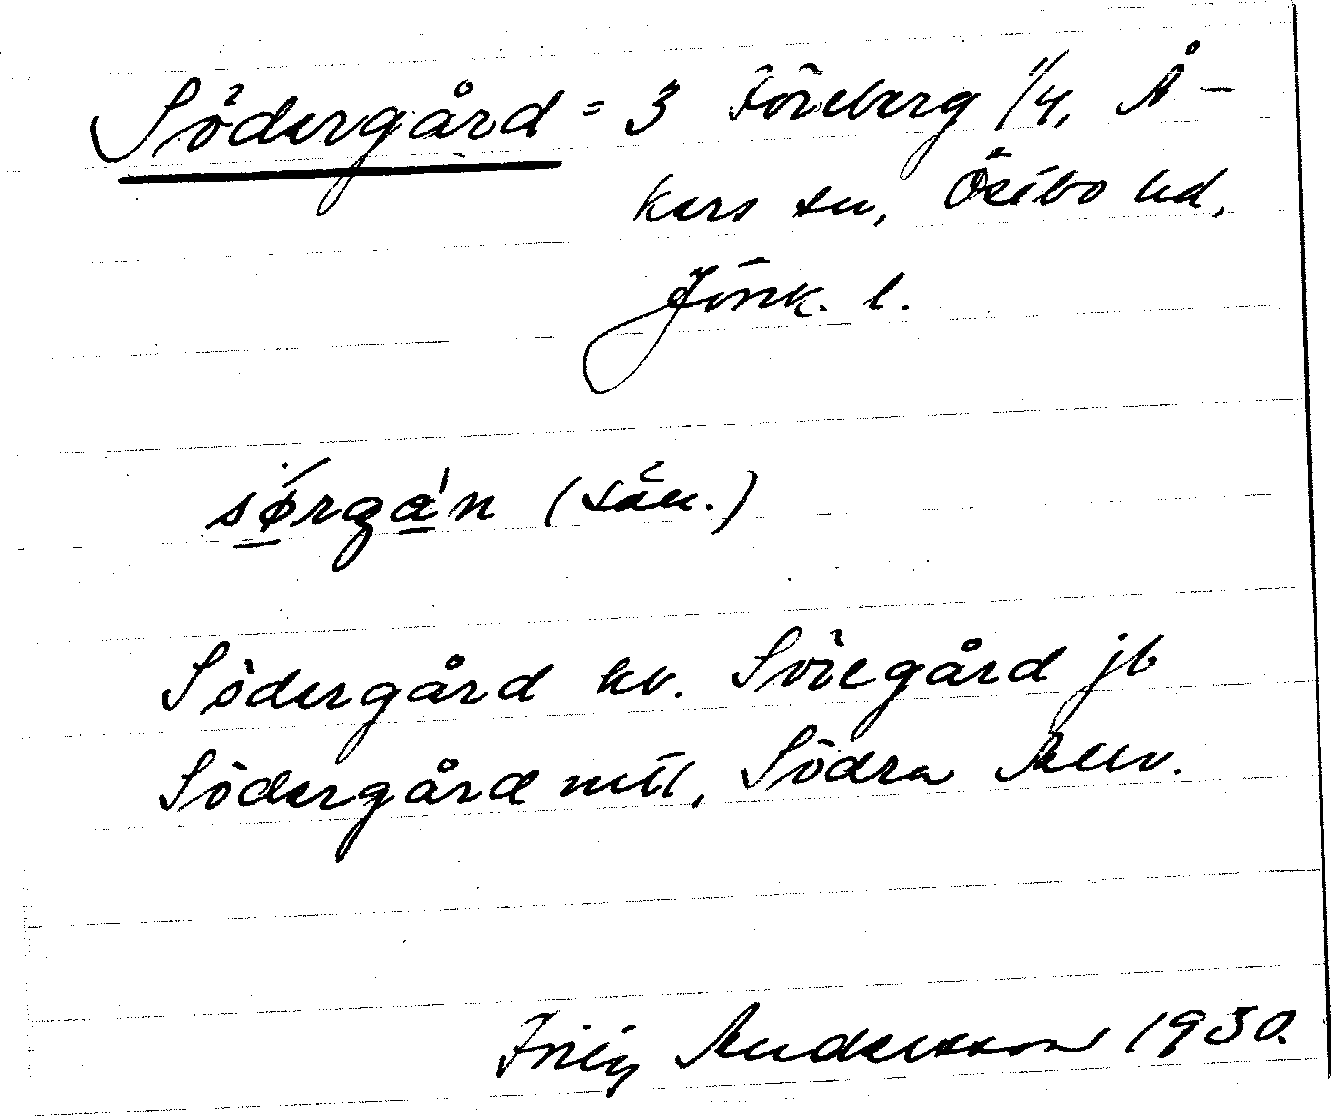 Södergård = 3 Föreberg 1/4, Å-
kers sn, Östbo hd,
Jönk. l.
sørgån (sån.)
Södergård kv. Söregård jb
Södergård mtl, Södra Allv.
Fritz Andersson 1930.